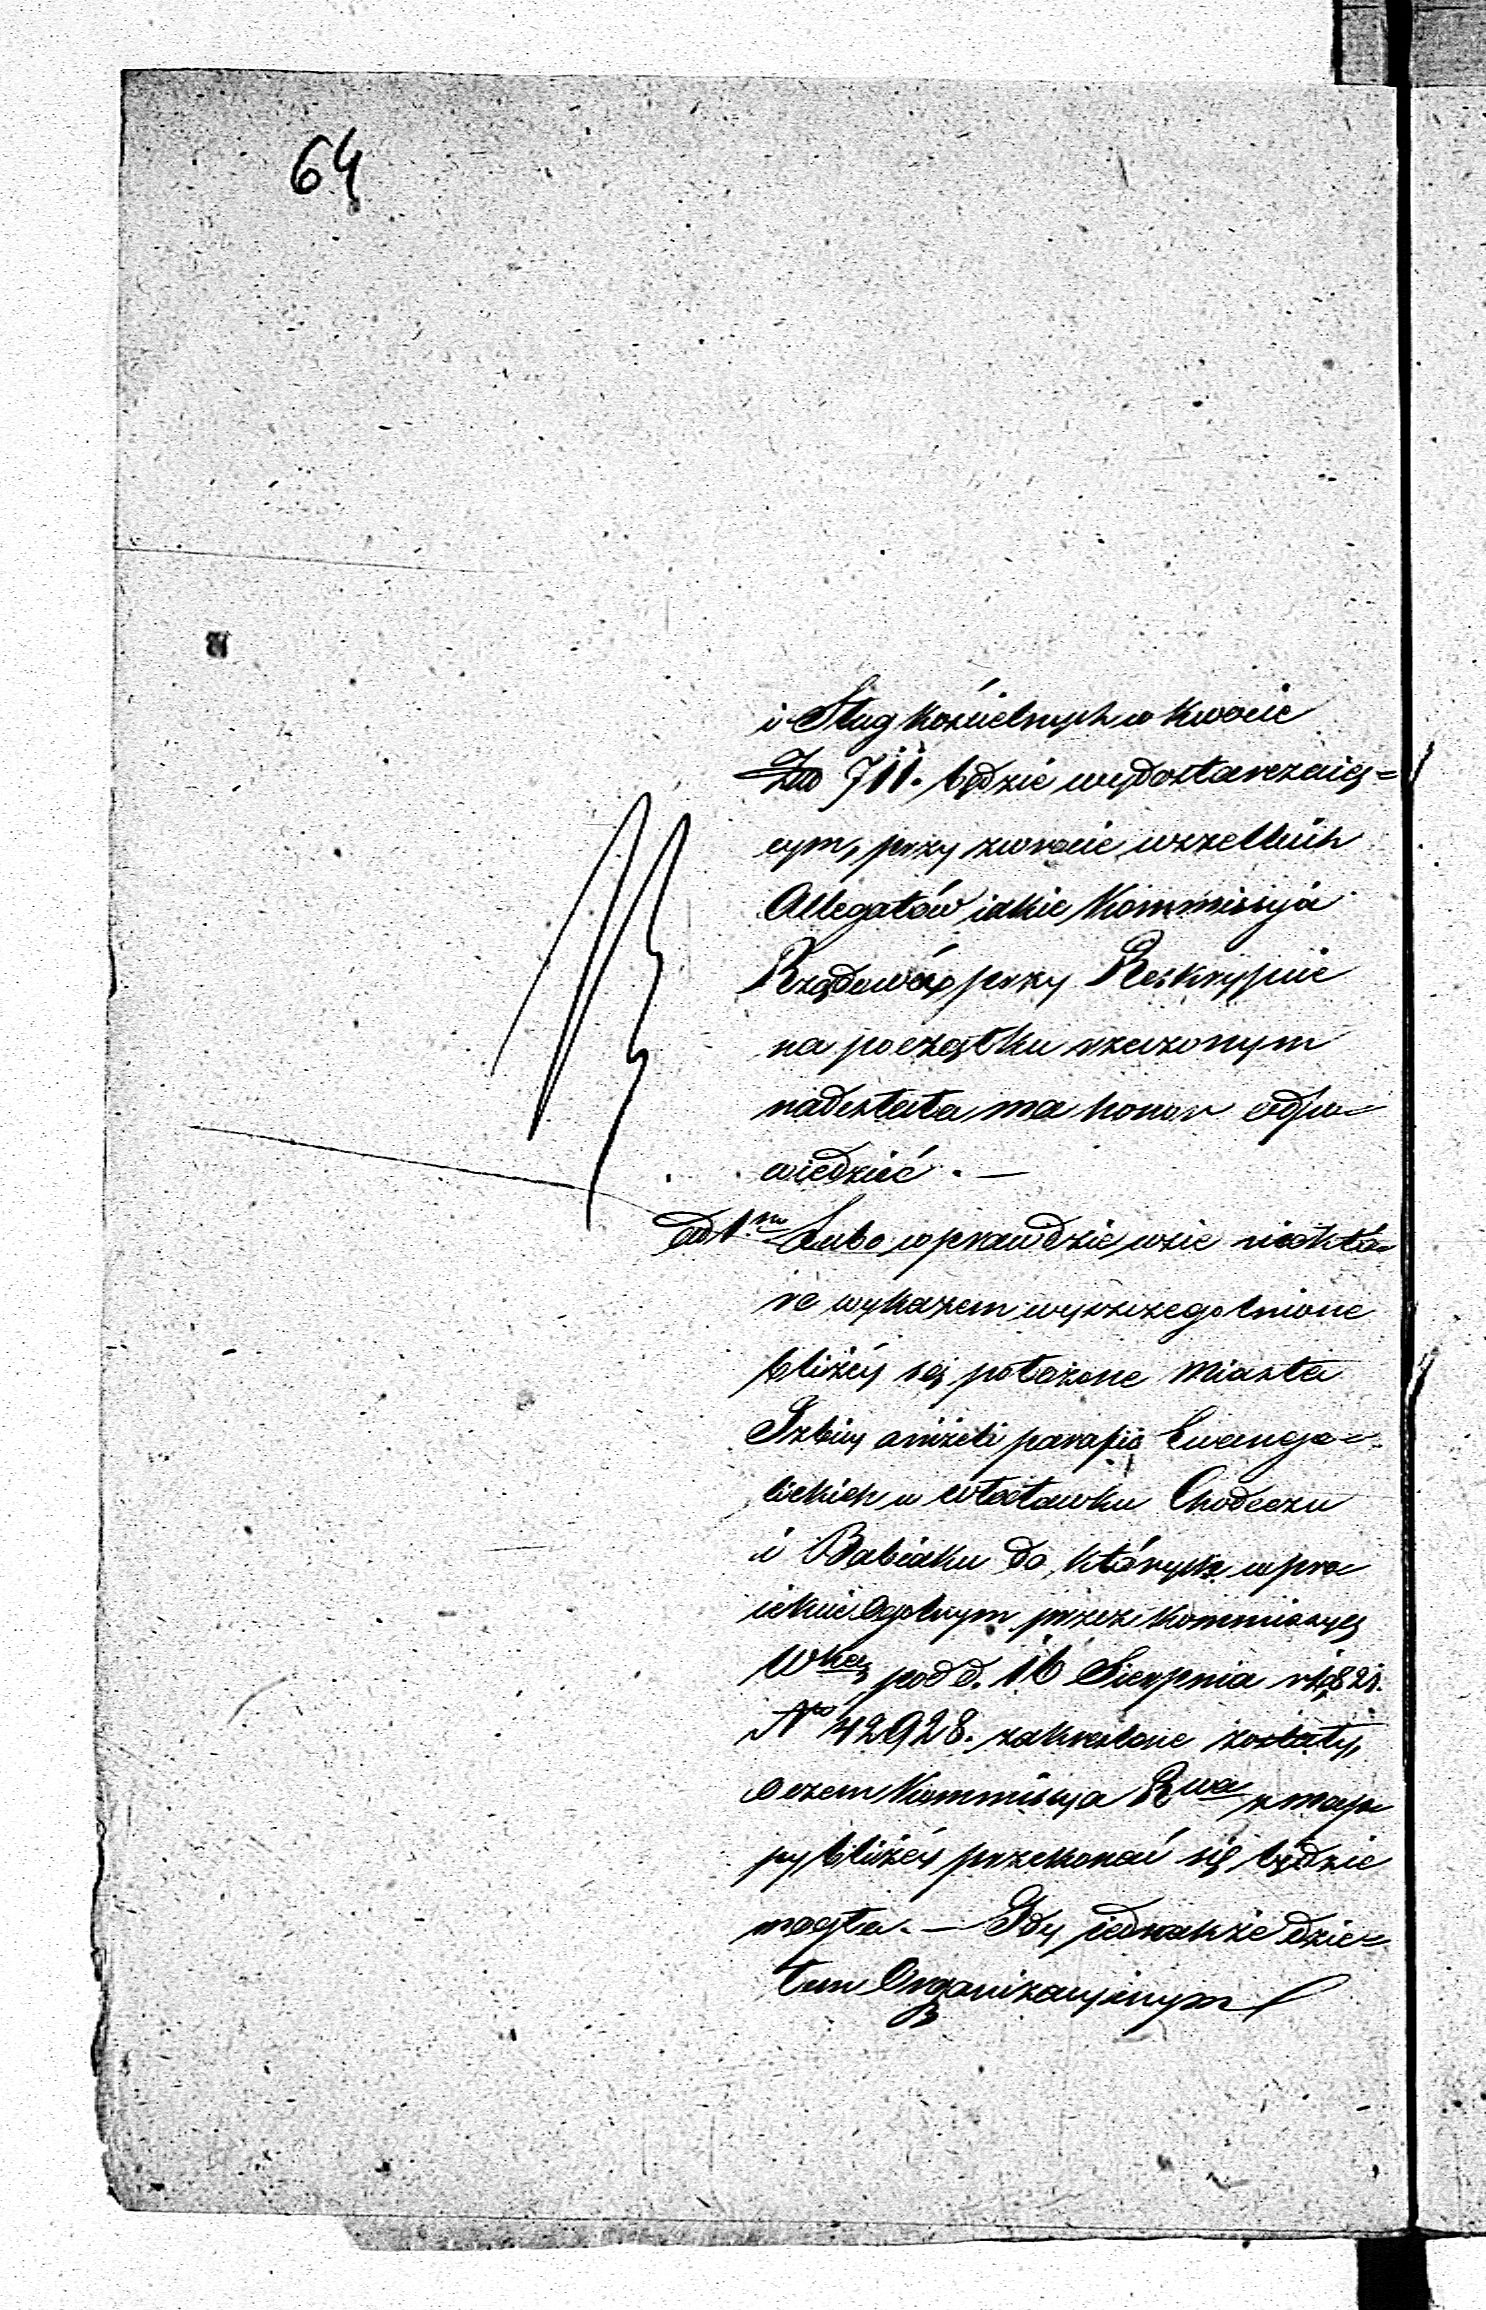 64
i Sług kościelnych w kwocie
Złł 711. będzie wydostarczaią=
cym, przy zwrocie wszelkich
Allegatów iakie Kommissyia
Rządowa przy Reskrypcie
na początku rzeczonym
nadesłała ma honor odpo=
wiedzieć. —
ad 1mo Lubo wprawdzie wsie niektó=
re wykazem wyszczegolnione
bliżéy są położone Miasta
Izbicy aniżeli parafió Ewange=
lickich w Włocławku Chodeczu
i Babiaku do których w pro
iekcie ogolnym przez Kommissyą
Wką pod d. 16 Sierpnia r 1821.
No 42928. zakreslone zostały,
o czem Kommissya Rwa z map
py bliżéy przekonać się będzie
mogła. — Gdy iednakże dzie=
łem Organizacyinym